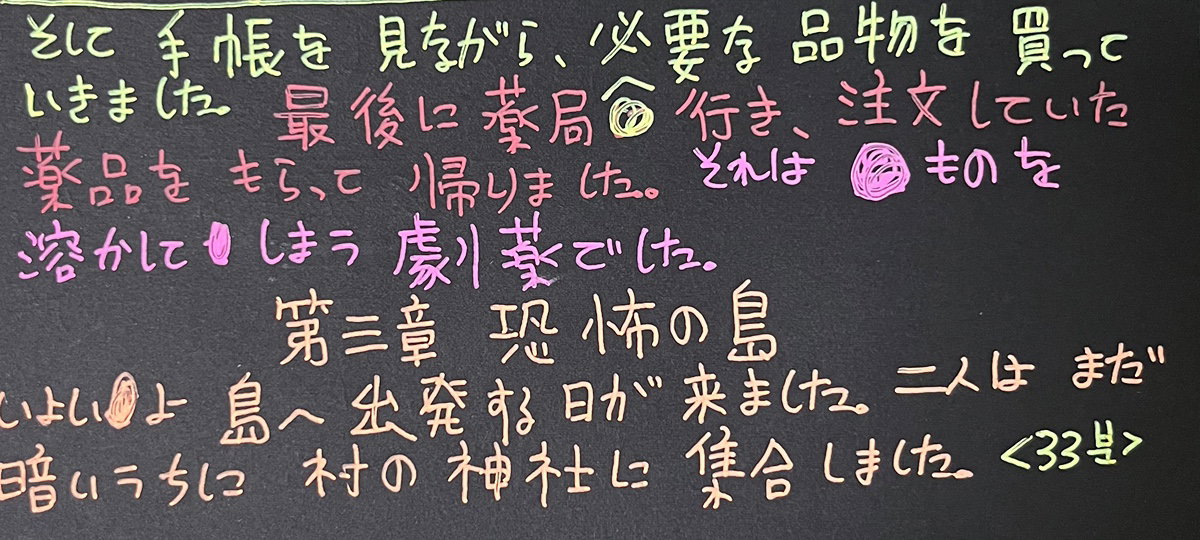 そして 手帳を 見ながら、必要な 品物を 買って
いきました。 最後に 薬局へ 行き、注文していた
薬品を もらって 帰りました。それは ものを
溶かして しまう 劇薬でした。
第三章 恐怖の島
いよいよ 島へ 出発する日が 来ました。二人は まだ
暗いうちに 村の 神社に 集合しました。<33분>